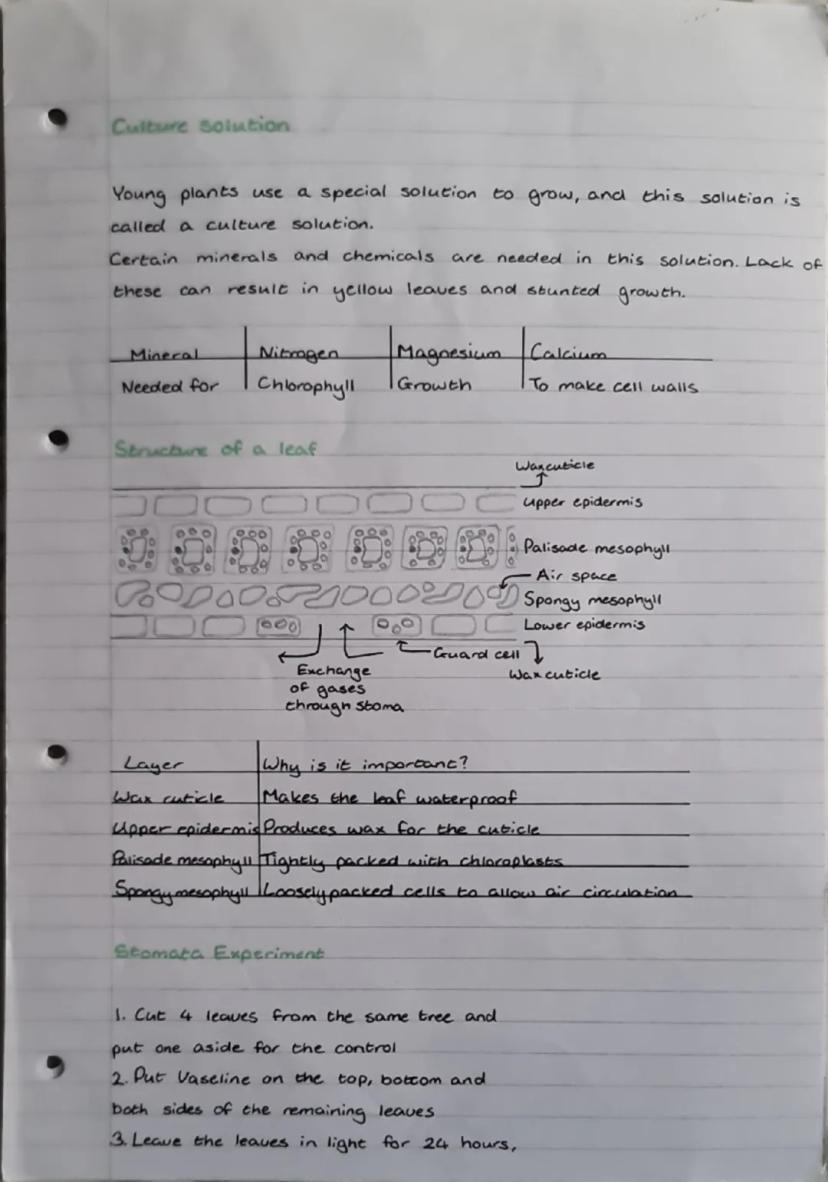 Culture solution
Young plants use a special solution to grow, and this solution is
called a culture solution.
Certain minerals and chemicals are needed in this solution. Lack of
these can result in yellow leaves and stunted growth.
Mineral Nitrogen Magnesium Calcium
Needed for Chlorophyll Growth To make cell walls
Structure of a leaf
Wax cuticle
Upper epidermis
Palisade mesophyll
Air space
Spongy mesophyll
Lower epidermis
Guard cell
Wax cuticle
Exchange
of gases
through stoma
Layer Why is it important?
Wax cuticle Makes the leaf waterproof
Upper epidermis Produces wax for the cuticle
Palisade mesophyll Tightly packed with chloroplasts
Spongy mesophyll Loosely packed cells to allow air circulation
Stomata Experiment
1. Cut 4 leaves from the same tree and
put one aside for the control
2. Put Vaseline on the top, bottom and
both sides of the remaining leaves
3. Leave the leaves in light for 24 hours,